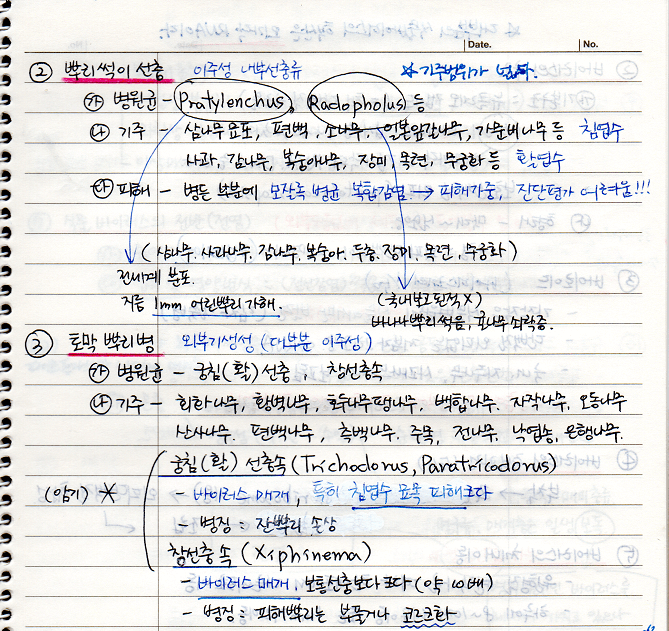 Date. No.
② 뿌리썩이 선충 이주성 내부선충류 ☆ 기주범위가 넓다.
㉮ 병원균 - Pratylenchus, Radopholus 등
㉯ 기주 - 삼나무 묘포, 편백, 소나무, 일본잎갈나무, 가문비나무 등 침엽수
사과, 감나무, 복숭아나무, 장미, 목련, 무궁화 등 활엽수
㉰ 피해 - 병든 부분에 모잘록 병균 복합감염 → 피해가중, 진단평가 어려움!!!
(삼나무, 사과나무, 감나무, 복숭아, 두충, 장미, 목련, 무궁화)
전세계 분포.
지름 1mm 어린뿌리 가해.
(국내보고된적 X)
바나나뿌리썩음, 귤나무 쇠락증.
③ 토막 뿌리병 외부기생성 (대부분 이주성)
㉮ 병원균 - 궁침(활)선충, 창선충속
㉯ 기주 - 회화나무, 황벽나무, 호두나무, 팽나무, 백합나무, 자작나무, 오동나무
산사나무, 편백나무, 측백나무, 주목, 전나무, 낙엽송, 은행나무.
(암기) * 궁침(활) 선충속 (Trichodorus, Paratricodorus)
- 바이러스 매개, 특히 침엽수 묘목 피해크다
- 병징 : 잔뿌리 손상
창선충속 (Xiphinema)
- 바이러스 매개, 보통선충보다 크다 (약 10배)
- 병징 : 피해뿌리는 부풀거나 코르크화